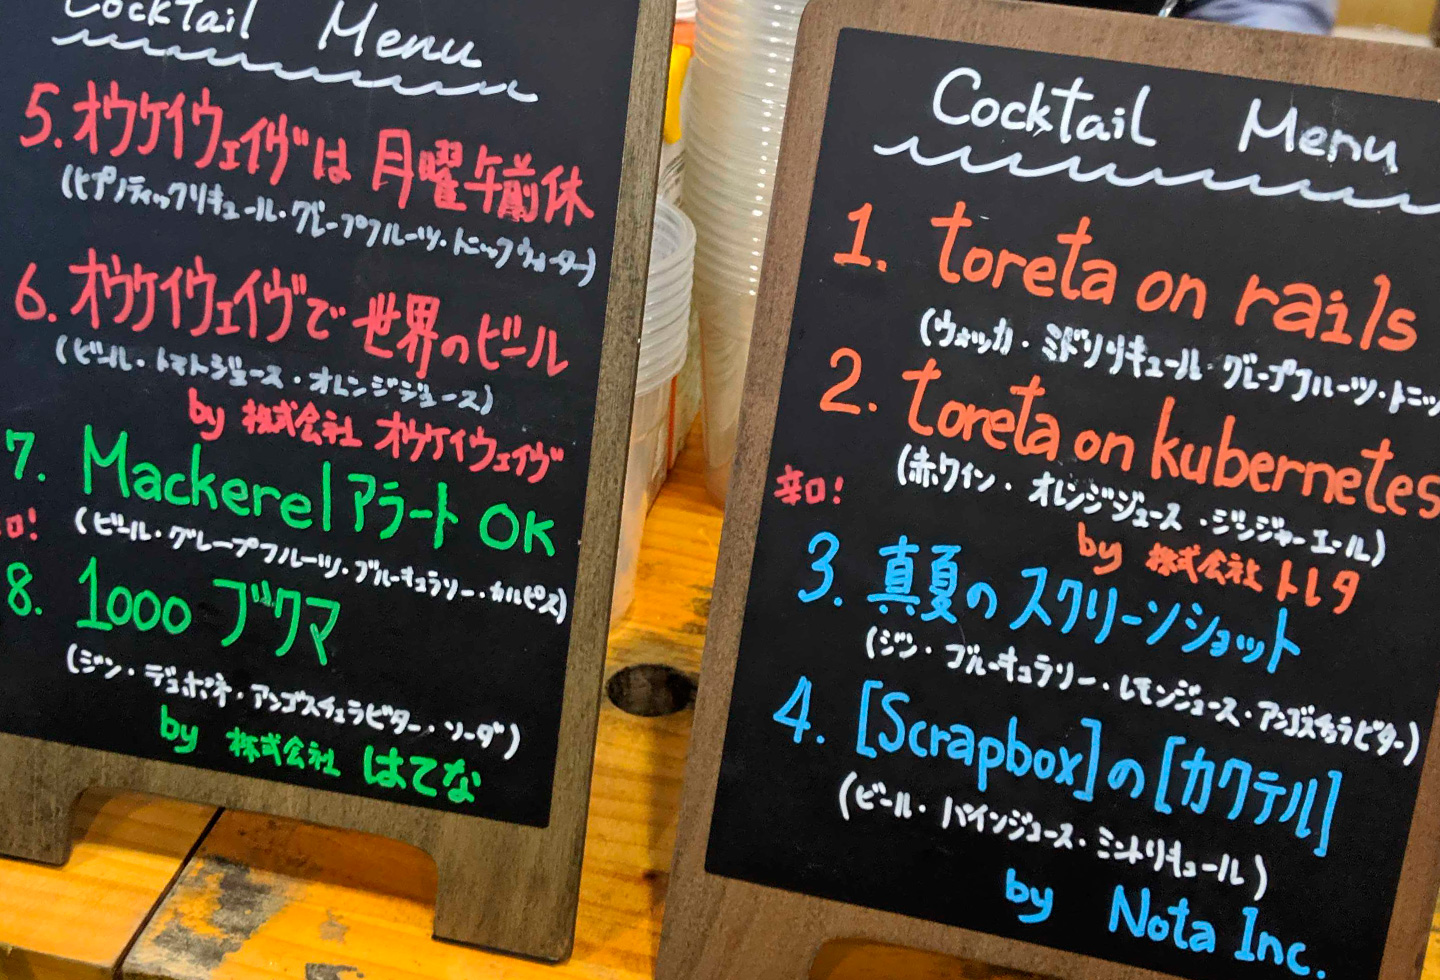 Cocktail Menu
5. オウケイウェイヴは 月曜午前休
(ヒプノティックリキュール・グレープフルーツ・トニックウォーター)
6. オウケイウェイヴで 世界のビール
(ビール・トマトジュース・オレンジジュース)
by 株式会社 オウケイウェイヴ
7. Mackerel アラート OK
口!
(ビール・グレープフルーツ・ブルーキュラソー・カルピス)
8. 1000 ブクマ
(ジン・デュボネ・アンゴスチュラビター・ソーダ)
by 株式会社 はてな
Cocktail Menu
1. toreta on rails
(ウォッカ・ミドリリキュール・グレープフルーツ・トニッ
2. toreta on kubernetes
(赤ワイン・オレンジジュース・ジンジャーエール)
辛口!
by 株式会社 トレタ
3. 真夏の スクリーンショット
(ジン・ブルーキュラソー・レモンジュース・アンゴスチュラビター)
4. [Scrapbox]の[カクテル]
(ビール・パインジュース・ミントリキュール)
by Nota Inc.